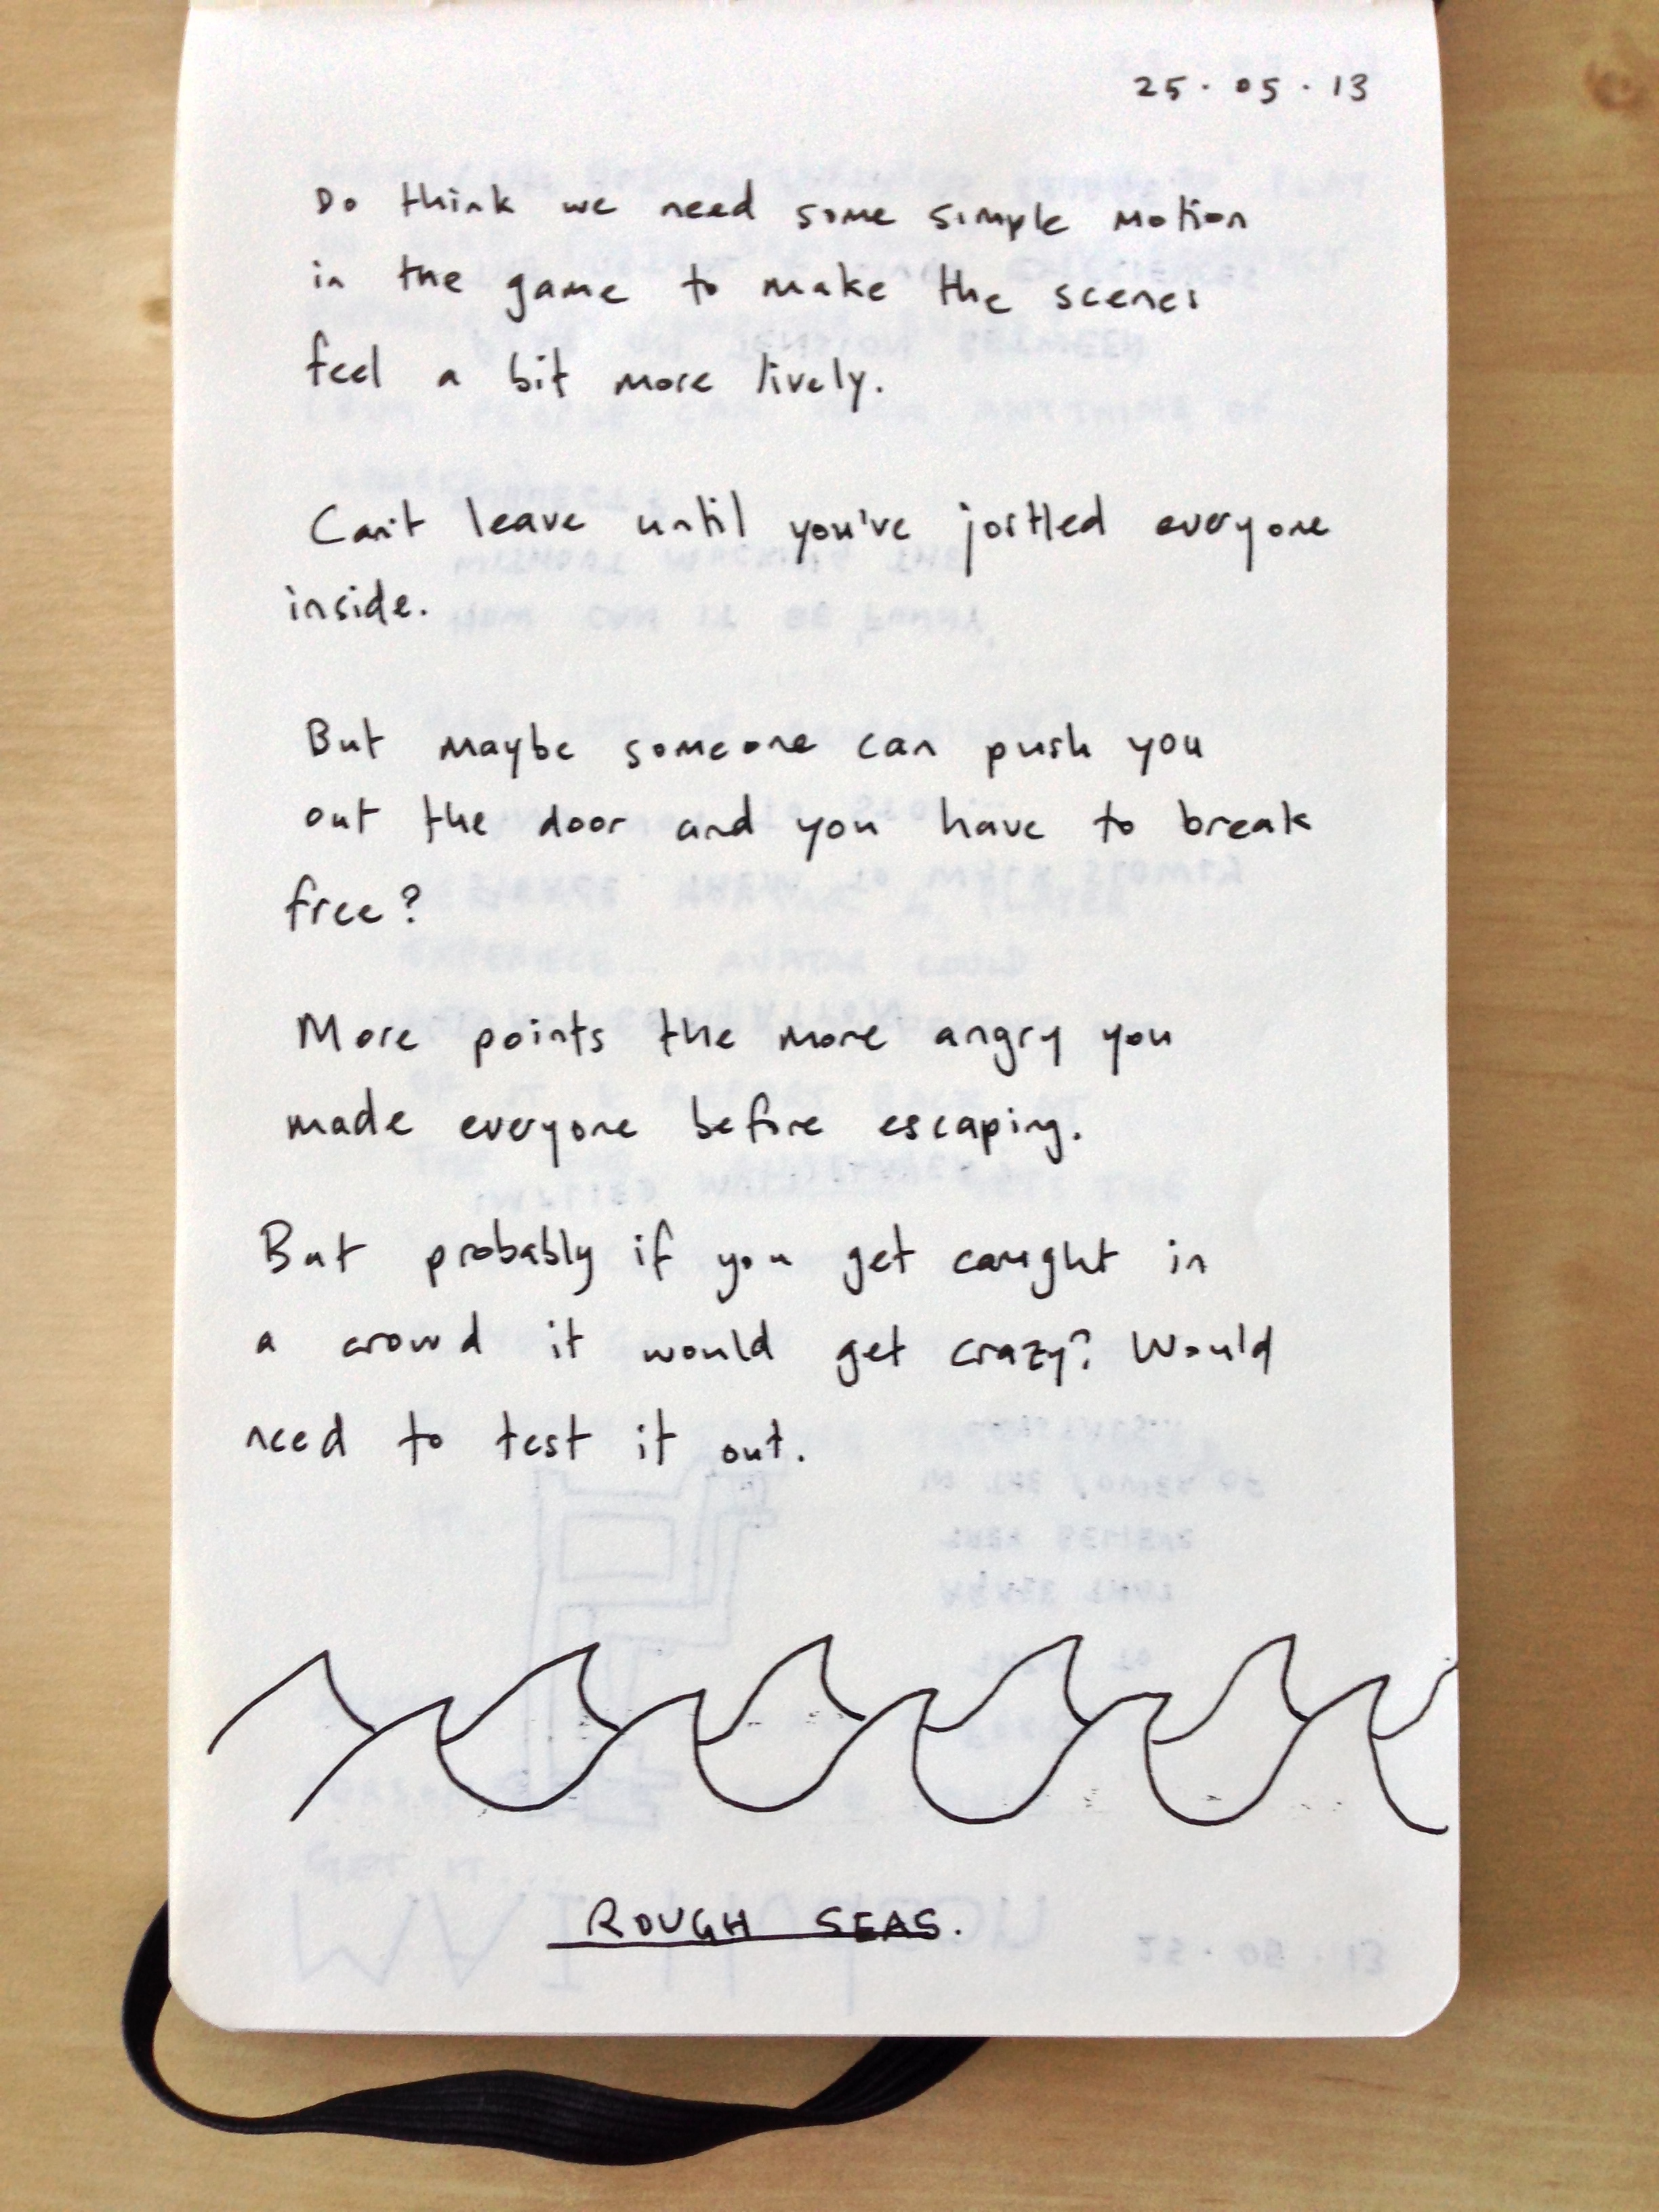 25.05.13
Do think we need some simple motion
in the game to make the scenes
feel a bit more lively.
Can't leave until you've jostled everyone
inside.
But maybe someone can push you
out the door and you have to break
free?
More points the more angry you
made everyone before escaping.
But probably if you get caught in
a crowd it would get crazy? Would
need to test it out.
ROUGH SEAS.